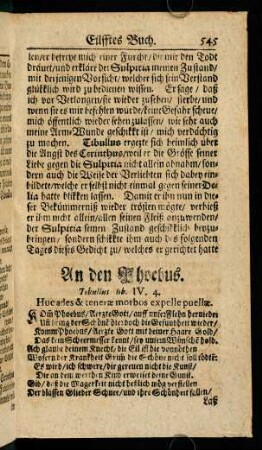 Eilfftes Buch. 545
len/er befreye mich einer Furcht/die mir den Todt
dreuet/und erkläre der Sulpitia meinen Zustand/
mit derjenigen Vorsicht/welcher sich sein Verstand
glüklich wird zu bedienen wissen. Er sage/ daß
ich vor Verlangen/sie wieder zusehen/ sterbe/und
wenn sie es mir befehlen würde/keine Gefahr scheue/
mich öffentlich wieder sehenzulassen/ wie sehr auch
meine Arm-Wunde geschikkt ist/ mich verdächtig
zu machen. Tibullus ergezte sich heimlich über
die Angst des Corinthus/weil er die Grösse seiner
Liebe gegen die Sulpitia nicht allein abnahm/son-
dern auch die Weise der Verliebten sich dabey ein-
bildete/welche er selbst nicht einmal gegen seiner De-
lia hatte blikken lassen. Damit er ihn nun in die-
ser Bekümmerniß wieder trösten mögte/ verhieß
er ihm nicht allein/allen seinen Fleiß anzuwenden/
der Sulpitia seinen Zustand geschikklich beyzu-
bringen/ sondern schikkte ihm auch des folgenden
Tages dieses Gedicht zu/ welches er verfertigt hatte
An den Phoebus.
Tibullus lib. IV. 4.
Huc ades & teneræ morbos expelle puellæ.
Kom Phoebus/Aerzte Gott/auff unser Flehn hernieder
Und bring der Schönheit doch die Gesundheit wieder/
Komm Phoebus/Aerzte Gott mit deiner Haare Gold/
Das kein Scheermesser kennt/sey unsern Wünschen hold.
Ach glaube deinem Knecht/ die Eil ist die vonnöthen
Wofern der Krankheit Grimm die Schöne nicht soll tödten:
Es wird/ich schwere/dir gereuen nicht die Kunst/
Die an dem werthen Kind erweiset deine Gunst.
Gib/ daß die Magerkeit nicht heßlich mög verstellen
Der blassen Glieder Schnee/und ihre Schönheit fällen/
Laß